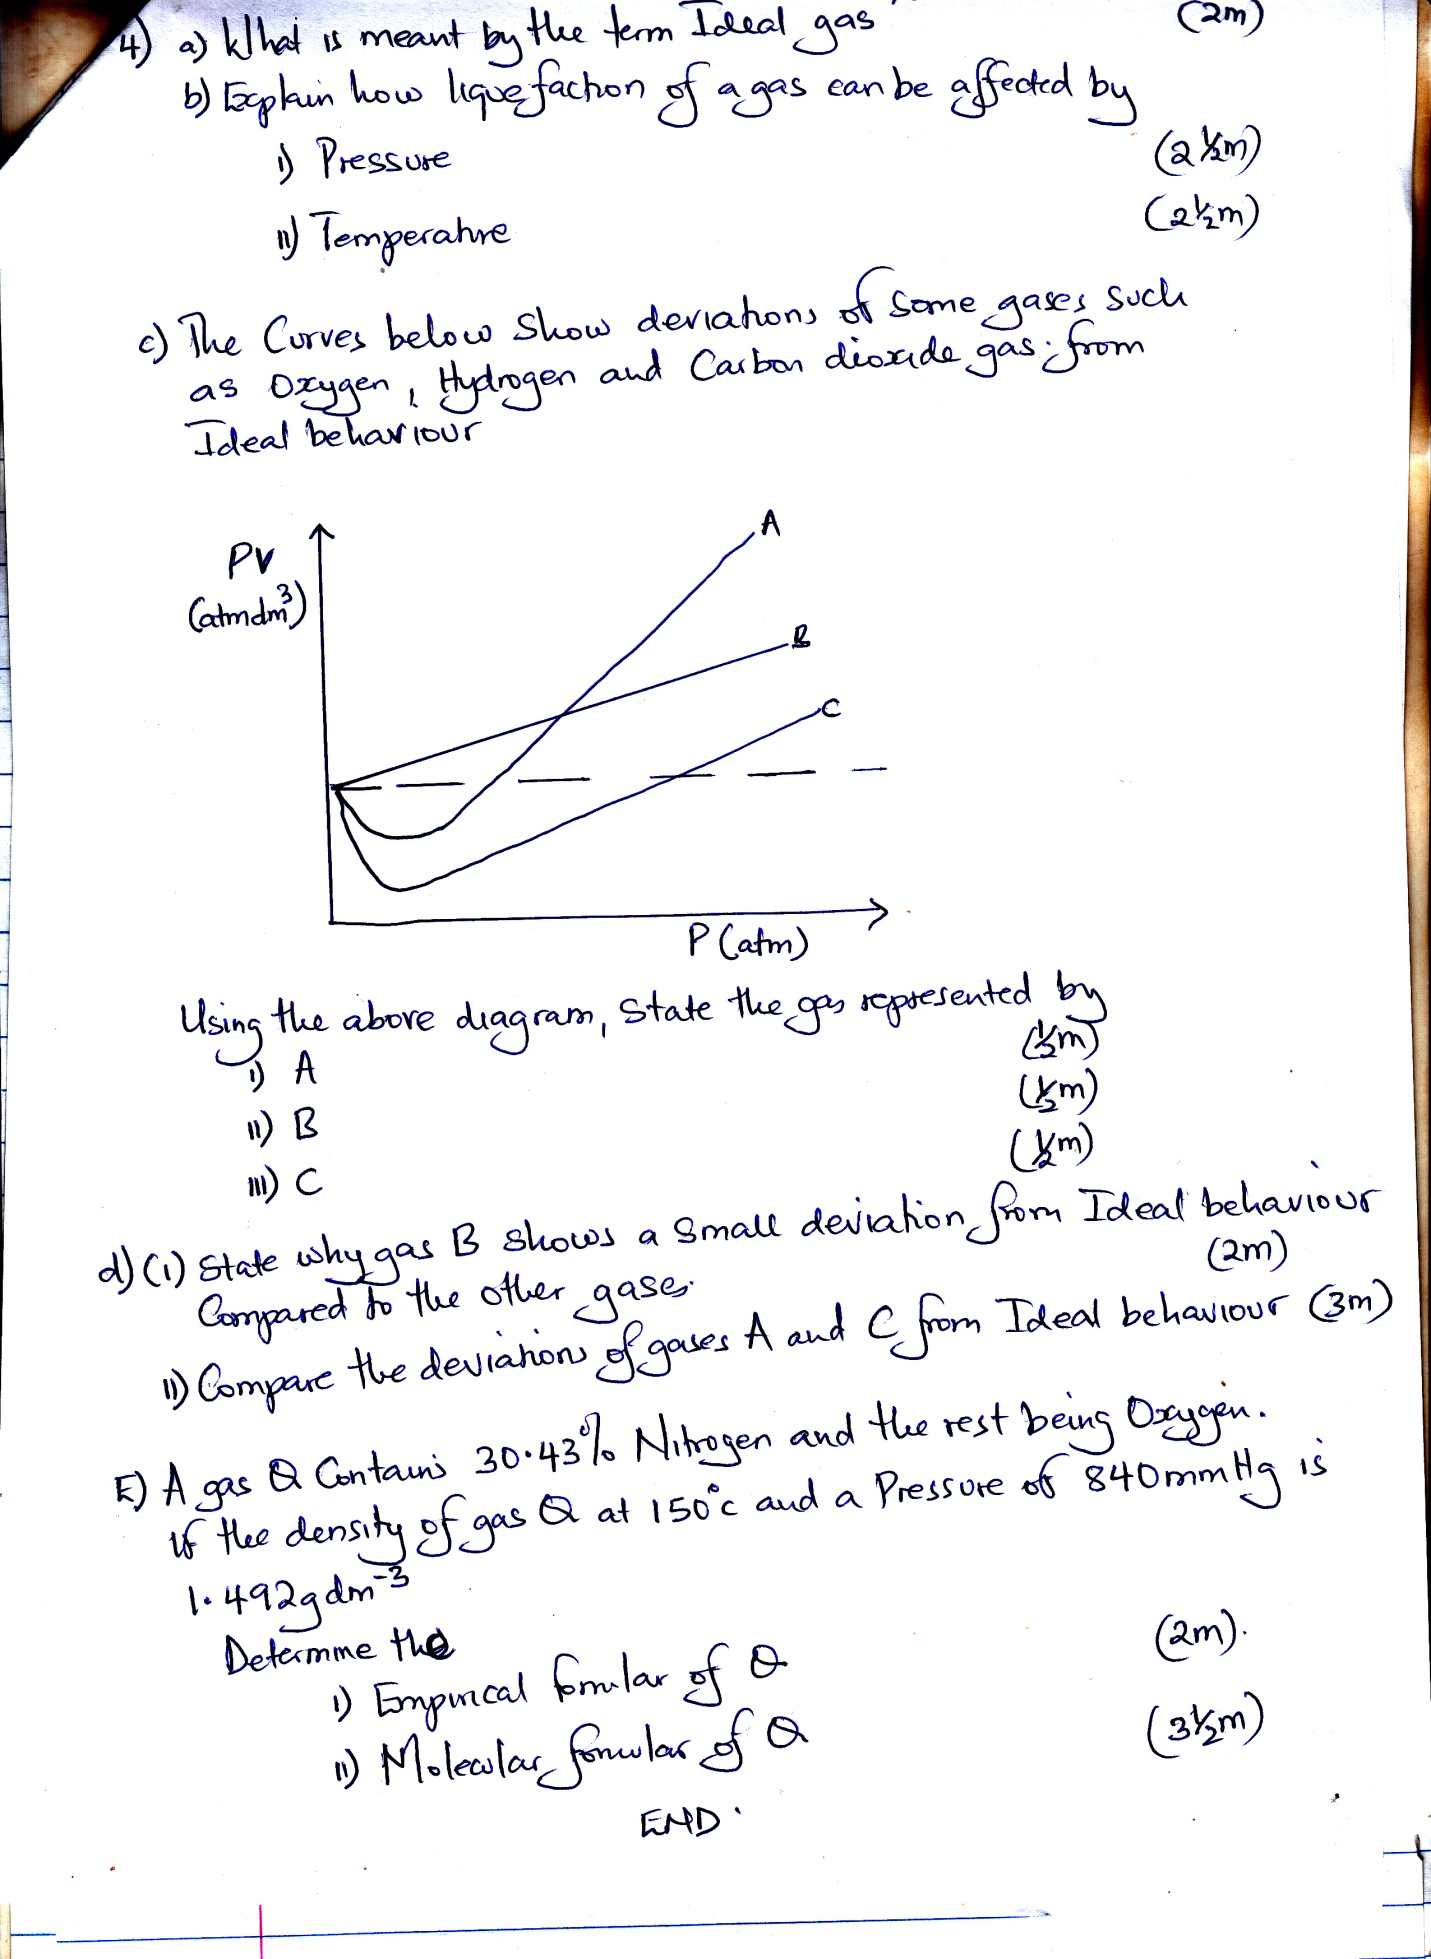 4) a) What is meant by the term Ideal gas (2m)
b) Explain how liquefaction of a gas can be affected by
i) Pressure (2 ½m)
ii) Temperature (2½m)
c) The Curves below Show deviations of some gases such
as Oxygen, Hydrogen and Carbon dioxide gas from
Ideal behaviour
A
PV
(atmdm³)
B
C
P (atm)
Using the above diagram, State the gas represented by
i) A (½m)
ii) B (½m)
iii) C (½m)
d) (i) State why gas B shows a small deviation from Ideal behaviour
Compared to the other gases. (2m)
ii) Compare the deviations of gases A and C from Ideal behaviour (3m)
E) A gas Q Contains 30.43% Nitrogen and the rest being Oxygen.
If the density of gas Q at 150°c and a Pressure of 840mmHg is
1.492gdm⁻³
Determine the
i) Empirical formular of Q (2m).
ii) Molecular formular of Q (3½m)
END.